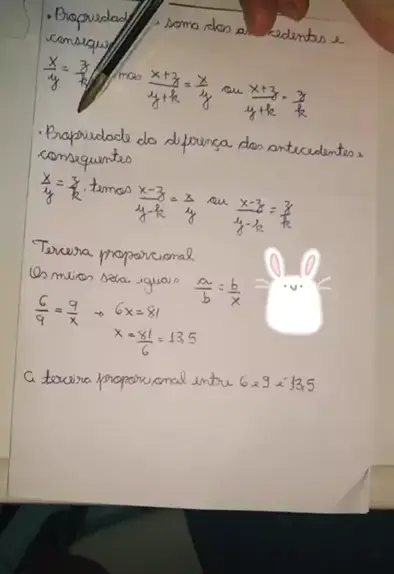 • Propriedad soma dos antecedentes e
consequ
x/y = z/k mos x+z/y+k = x/y ou x+z/y+k = z/k
• Propriedade da diferença dos antecedentes e
consequentes
x/y = z/k, temos x-z/y-k = x/y ou x-z/y-k = z/k
Terceira proporcional
Os meios iguais a/b = b/x
6/9 = 9/x → 6x = 81
x = 81/6 = 13,5
A terceira proporcional entre 6 e 9 é 13,5